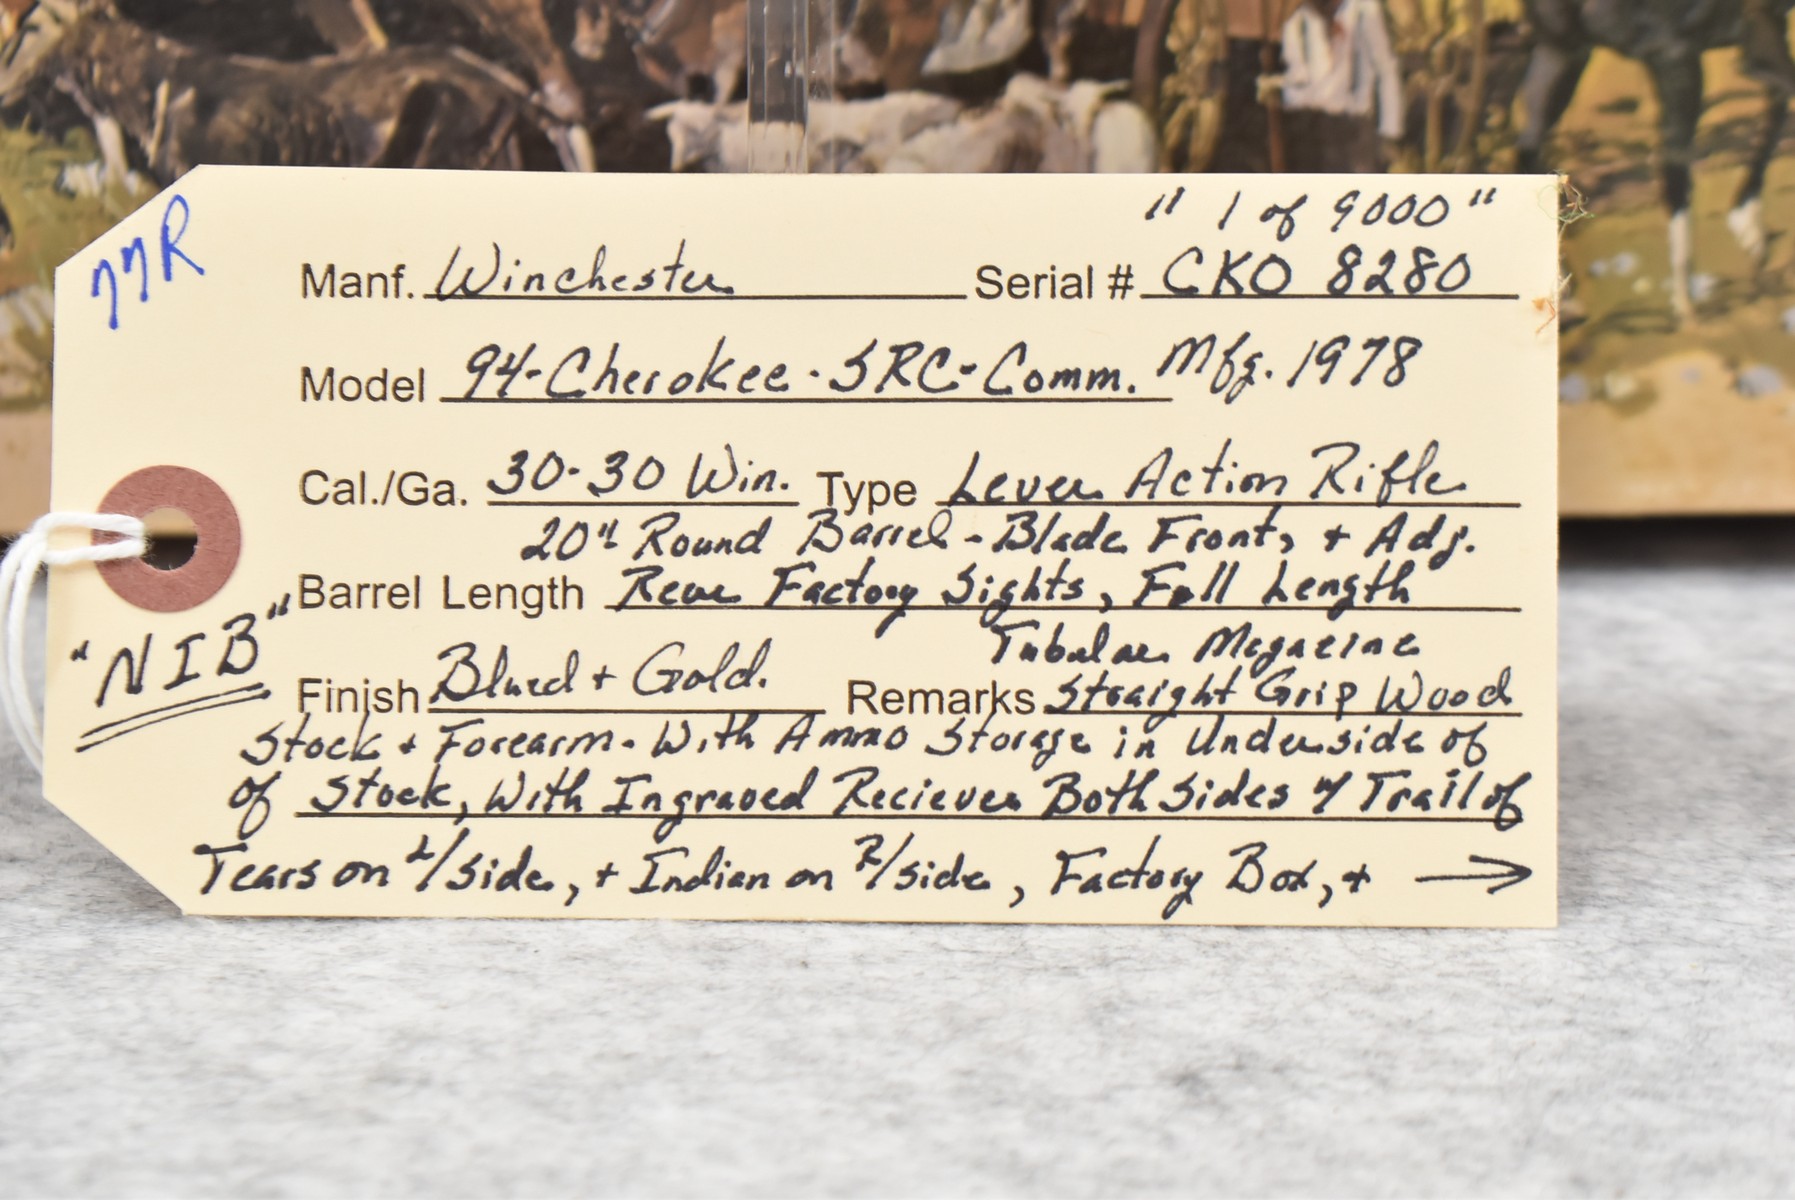 77R
" 1 of 9000 "
Manf. Winchester Serial # CKO 8280
Model 94-Cherokee-SRC-Comm. Mfg. 1978
Cal./Ga. 30-30 Win. Type Lever Action Rifle
20" Round Barrel - Blade Front, + Adj.
Barrel Length Rear Factory Sights, Full Length
Tubular Magazine
"NIB"
Finish Blued + Gold. Remarks Straight Grip Wood
Stock + Forearm. With Ammo Storage in Underside of
of Stock, With Ingraved Reciever Both Sides Trail of
Tears on L/side, + Indian on R/side, Factory Box, + →